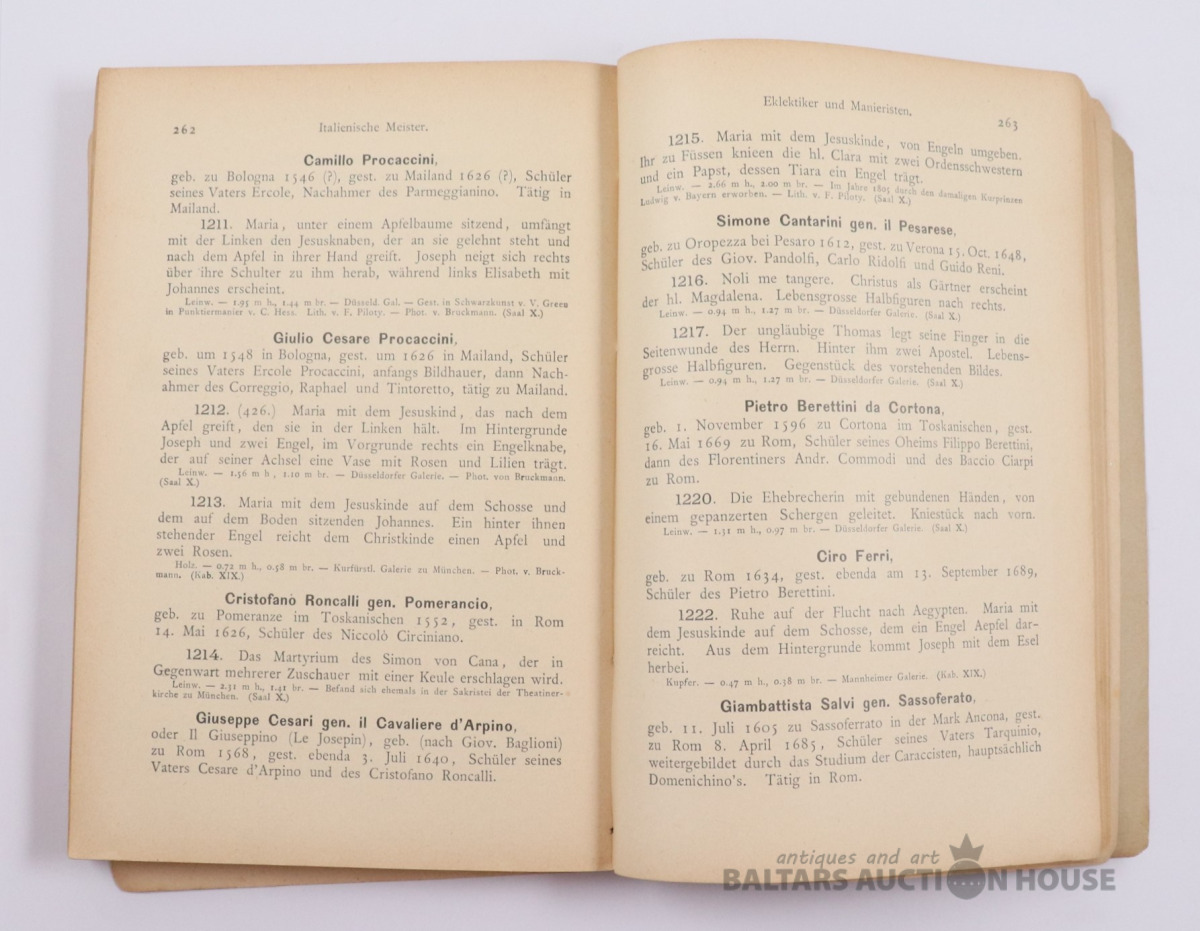 262
Italienische Meister.
Camillo Procaccini,
geb. zu Bologna 1546 (?), gest. zu Mailand 1626 (?), Schüler
seines Vaters Ercole, Nachahmer des Parmeggianino. Tätig in
Mailand.
1211. Maria, unter einem Apfelbaume sitzend, umfängt
mit der Linken den Jesusknaben, der an sie gelehnt steht und
nach dem Apfel in ihrer Hand greift. Joseph neigt sich rechts
über ihre Schulter zu ihm herab, während links Elisabeth mit
Johannes erscheint.
Leinw. — 1.95 m h., 1.44 m br. — Düsseld. Gal. — Gest. in Schwarzkunst v. V. Green
in Punktiermanier v. C. Hess. Lith. v. F. Piloty. — Phot. v. Bruckmann. (Saal X.)
Giulio Cesare Procaccini,
geb. um 1548 in Bologna, gest. um 1626 in Mailand, Schüler
seines Vaters Ercole Procaccini, anfangs Bildhauer, dann Nach-
ahmer des Correggio, Raphael und Tintoretto, tätig zu Mailand.
1212. (426.) Maria mit dem Jesuskind, das nach dem
Apfel greift, den sie in der Linken hält. Im Hintergrunde
Joseph und zwei Engel, im Vorgrunde rechts ein Engelknabe,
der auf seiner Achsel eine Vase mit Rosen und Lilien trägt.
Leinw. — 1.56 m h , 1.10 m br. — Düsseldorfer Galerie. — Phot. von Bruckmann.
(Saal X.)
1213. Maria mit dem Jesuskinde auf dem Schosse und
dem auf dem Boden sitzenden Johannes. Ein hinter ihnen
stehender Engel reicht dem Christkinde einen Apfel und
zwei Rosen.
Holz. — 0.72 m h., 0.58 m br. — Kurfürstl. Galerie zu München. — Phot. v. Bruck-
mann. (Kab. XIX.)
Cristofano Roncalli gen. Pomerancio,
geb. zu Pomeranze im Toskanischen 1552, gest. in Rom
14. Mai 1626, Schüler des Niccolò Circiniano.
1214. Das Martyrium des Simon von Cana, der in
Gegenwart mehrerer Zuschauer mit einer Keule erschlagen wird.
Leinw. — 2.31 m h., 1.41 br. — Befand sich ehemals in der Sakristei der Theatiner-
kirche zu München. (Saal X.)
Giuseppe Cesari gen. il Cavaliere d'Arpino,
oder Il Giuseppino (Le Josepin), geb. (nach Giov. Baglioni)
zu Rom 1568, gest. ebenda 3. Juli 1640, Schüler seines
Vaters Cesare d'Arpino und des Cristofano Roncalli.
Eklektiker und Manieristen.
263
1215. Maria mit dem Jesuskinde, von Engeln umgeben.
Ihr zu Füssen knieen die hl. Clara mit zwei Ordensschwestern
und ein Papst, dessen Tiara ein Engel trägt.
Leinw. — 2.66 m h., 2.00 m br. — Im Jahre 1805 durch den damaligen Kurprinzen
Ludwig v. Bayern erworben. — Lith. v. F. Piloty. (Saal X.)
Simone Cantarini gen. il Pesarese,
geb. zu Oropezza bei Pesaro 1612, gest. zu Verona 15. Oct. 1648,
Schüler des Giov. Pandolfi, Carlo Ridolfi und Guido Reni.
1216. Noli me tangere. Christus als Gärtner erscheint
der hl. Magdalena. Lebensgrosse Halbfiguren nach rechts.
Leinw. — 0.94 m h., 1.27 m br. — Düsseldorfer Galerie. (Saal X.)
1217. Der ungläubige Thomas legt seine Finger in die
Seitenwunde des Herrn. Hinter ihm zwei Apostel. Lebens-
grosse Halbfiguren. Gegenstück des vorstehenden Bildes.
Leinw. — 0.94 m h., 1.27 m br. — Düsseldorfer Galerie. (Saal X.)
Pietro Berettini da Cortona,
geb. 1. November 1596 zu Cortona im Toskanischen, gest.
16. Mai 1669 zu Rom, Schüler seines Oheims Filippo Berettini,
dann des Florentiners Andr. Commodi und des Baccio Ciarpi
zu Rom.
1220. Die Ehebrecherin mit gebundenen Händen, von
einem gepanzerten Schergen geleitet. Kniestück nach vorn.
Leinw. — 1.31 m h., 0.97 m br. — Düsseldorfer Galerie. (Saal X.)
Ciro Ferri,
geb. zu Rom 1634, gest. ebenda am 13. September 1689,
Schüler des Pietro Berettini.
1222. Ruhe auf der Flucht nach Aegypten. Maria mit
dem Jesuskinde auf dem Schosse, dem ein Engel Aepfel dar-
reicht. Aus dem Hintergrunde kommt Joseph mit dem Esel
herbei.
Kupfer. — 0.47 m h., 0.38 m br. — Mannheimer Galerie. (Kab. XIX.)
Giambattista Salvi gen. Sassoferato,
geb. 11. Juli 1605 zu Sassoferrato in der Mark Ancona, gest.
zu Rom 8. April 1685, Schüler seines Vaters Tarquinio,
weitergebildet durch das Studium der Caraccisten, hauptsächlich
Domenichino's. Tätig in Rom.
antiques and art
BALTARS AUCTION HOUSE